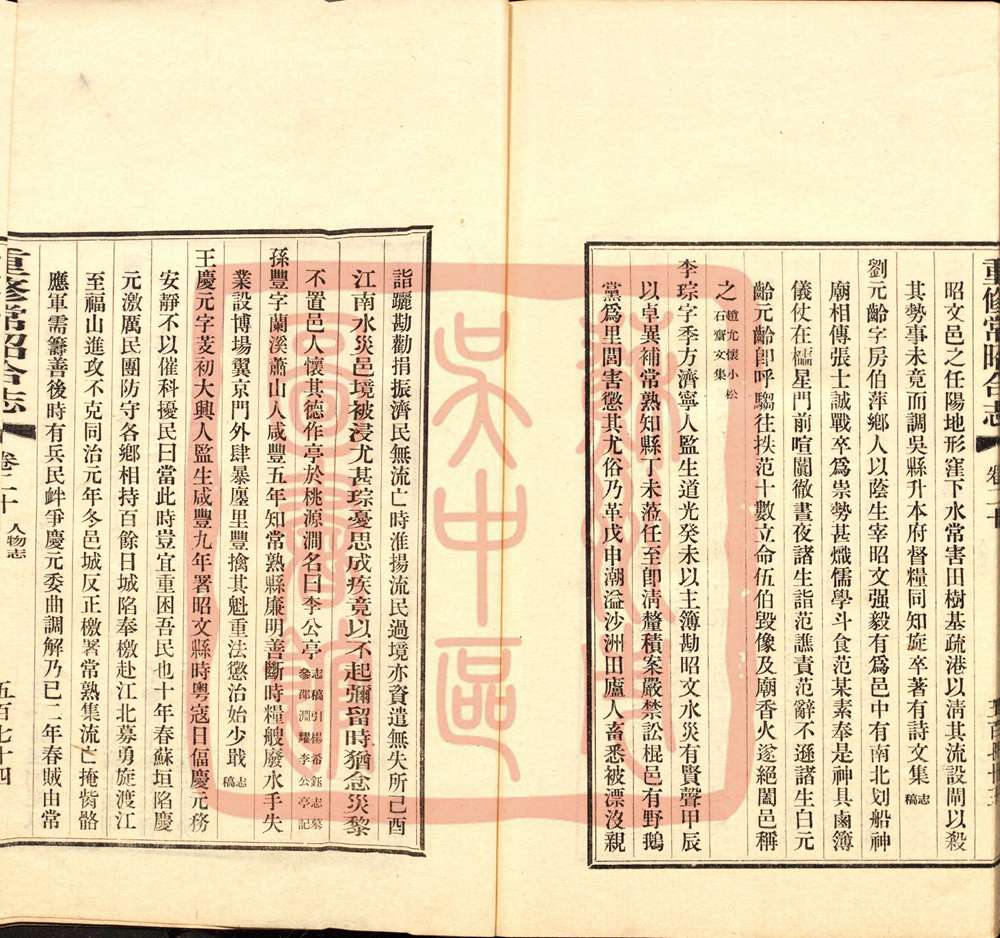 重修常昭合志 卷二十
昭文邑之任陽地形窪下水常害田樹基疏港以清其流設閘以殺
其勢事未竟而調吳縣升本府督糧同知旋卒著有詩文集志稿
劉元齡字房伯萍鄉人以蔭生宰昭文强毅有爲邑中有南北划船神
廟相傳張士誠戰卒爲祟勢甚熾儒學斗食范某素奉是神具鹵簿
儀仗在櫺星門前喧闐徹晝夜諸生詣范譙責范辭不遜諸生白元
齡元齡卽呼騶往抶范十數立命伍伯毀像及廟香火遂絕闔邑稱
之趙允懷小松石齋文集
李琮字季方濟寧人監生道光癸未以主簿勘昭文水災有賢聲甲辰
以卓異補常熟知縣丁未蒞任至卽清釐積案嚴禁訟棍邑有野鵝
黨爲里閭害懲其尤俗乃革戊申潮溢沙洲田廬人畜悉被漂沒親
詣躧勘勸捐振濟民無流亡時淮揚流民過境亦資遣無失所己酉
江南水災邑境被浸尤甚琮憂思成疾竟以不起彌留時猶念災黎
不置邑人懷其德作亭於桃源澗名曰李公亭志稿引楊希鈺志墓參邵淵耀李公亭記
孫豐字蘭溪蕭山人咸豐五年知常熟縣廉明善斷時糧艘廢水手失
業設博場翼京門外肆暴廛里豐擒其魁重法懲治始少戢志稿
王慶元字芰初大興人監生咸豐九年署昭文縣時粵寇日偪慶元務
安靜不以催科擾民曰當此時豈宜重困吾民也十年春蘇垣陷慶
元激厲民團防守各鄉相持百餘日城陷奉檄赴江北募勇旋渡江
至福山進攻不克同治元年冬邑城反正檄署常熟集流亡掩胔骼
應軍需籌善後時有兵民衅爭慶元委曲調解乃已二年春賊由常
重修常昭合志 卷二十 人物志 五百七十四
吳中區